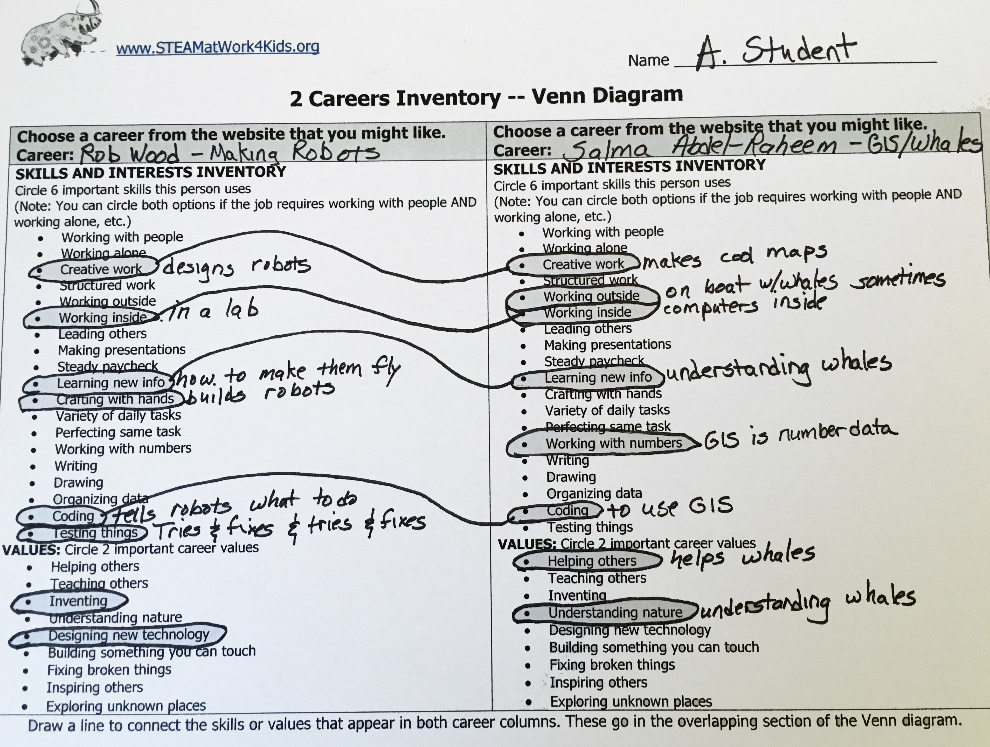 www.STEAMatWork4Kids.org
Name A. Student
2 Careers Inventory -- Venn Diagram
Choose a career from the website that you might like.
Career: Rob Wood - Making Robots
SKILLS AND INTERESTS INVENTORY
Circle 6 important skills this person uses
(Note: You can circle both options if the job requires working with people AND
working alone, etc.)
• Working with people
• Working alone
• Creative work designs robots
• Structured work
• Working outside
• Working inside in a lab
• Leading others
• Making presentations
• Steady paycheck
• Learning new info how to make them fly
• Crafting with hands builds robots
• Variety of daily tasks
• Perfecting same task
• Working with numbers
• Writing
• Drawing
• Organizing data
• Coding tells robots what to do
• Testing things Tries & fixes & tries & fixes
VALUES: Circle 2 important career values
• Helping others
• Teaching others
• Inventing
• Understanding nature
• Designing new technology
• Building something you can touch
• Fixing broken things
• Inspiring others
• Exploring unknown places
Choose a career from the website that you might like.
Career: Salma Abdel-Raheem - GIS/Whales
SKILLS AND INTERESTS INVENTORY
Circle 6 important skills this person uses
(Note: You can circle both options if the job requires working with people AND
working alone, etc.)
• Working with people
• Working alone
• Creative work makes cool maps
• Structured work
• Working outside on boat w/whales sometimes
• Working inside computers inside
• Leading others
• Making presentations
• Steady paycheck
• Learning new info understanding whales
• Crafting with hands
• Variety of daily tasks
• Perfecting same task
• Working with numbers GIS is number data
• Writing
• Drawing
• Organizing data
• Coding to use GIS
• Testing things
VALUES: Circle 2 important career values
• Helping others helps whales
• Teaching others
• Inventing
• Understanding nature understanding whales
• Designing new technology
• Building something you can touch
• Fixing broken things
• Inspiring others
• Exploring unknown places
Draw a line to connect the skills or values that appear in both career columns. These go in the overlapping section of the Venn diagram.